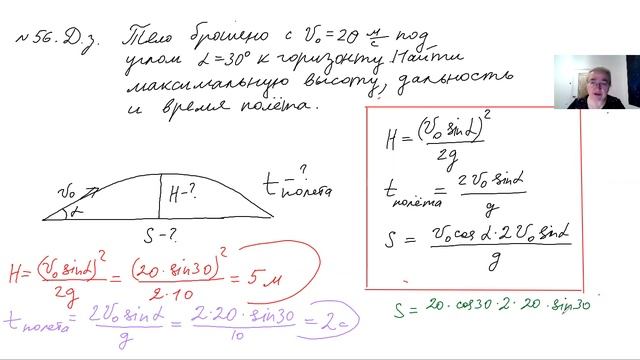 №56. Д.з. Тело брошено с V₀ = 20 м/с под
углом α = 30° к горизонту Найти
максимальную высоту, дальность
и время полёта.
H = (V₀ sinα)² / 2g
t полёта = 2V₀ sinα / g
S = V₀ cosα · 2V₀ sinα / g
V₀
α
H - ?
t полета - ?
S - ?
H = (V₀ sinα)² / 2g = (20 · sin30)² / 2·10 = 5 м
t полета = 2V₀ sinα / g = 2·20·sin30 / 10 = 2 с
S = 20 · cos30 · 2 · 20 · sin30